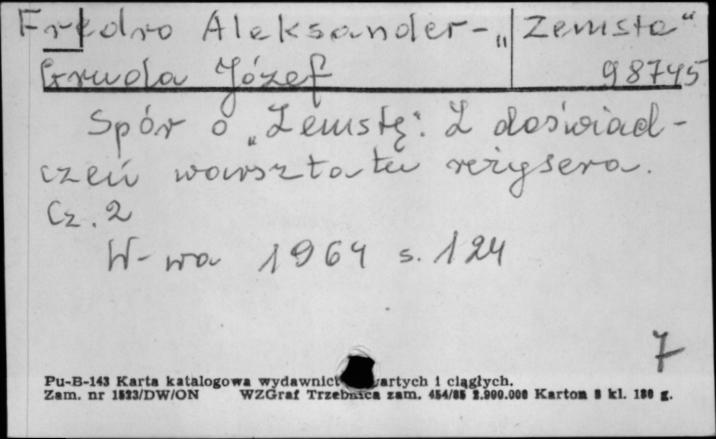 Fredro Aleksander - „Zemsta"
Gruda Józef 98745
Spór o „Zemstę". Z doświad-
czeń warsztatu reżysera.
Cz. 2
W-wa 1964 s. 124
7
Pu-B-143 Karta katalogowa wydawnict artych i ciągłych.
Zam. nr 1523/DW/ON WZGraf Trzebnica zam. 454/85 2.900.000 Karton kl. 180 g.